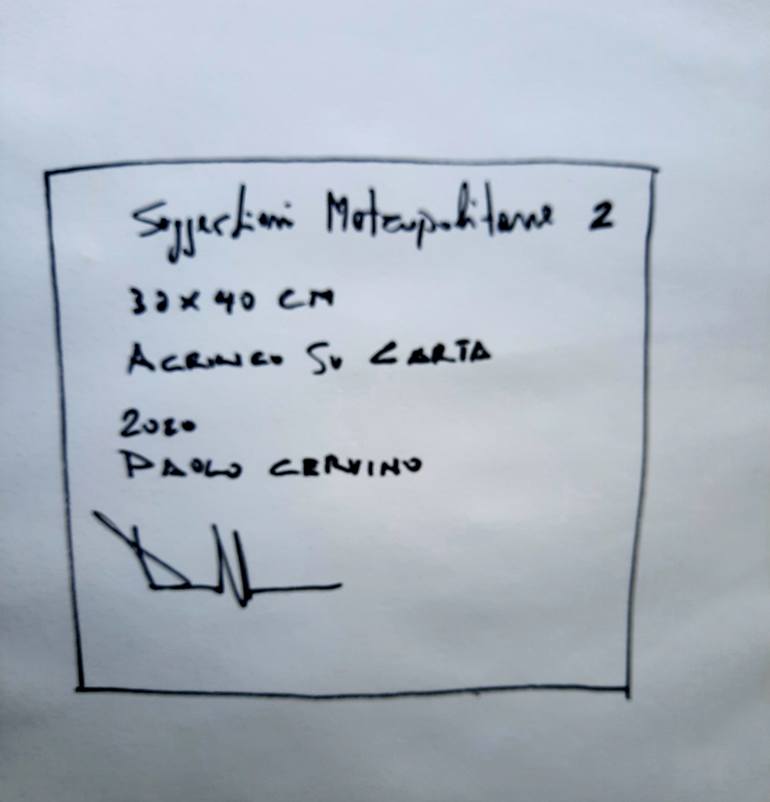 Suggestioni Metropolitane 2
30x40 CM
ACRILICO SU CARTA
2020
PAOLO CERVINO